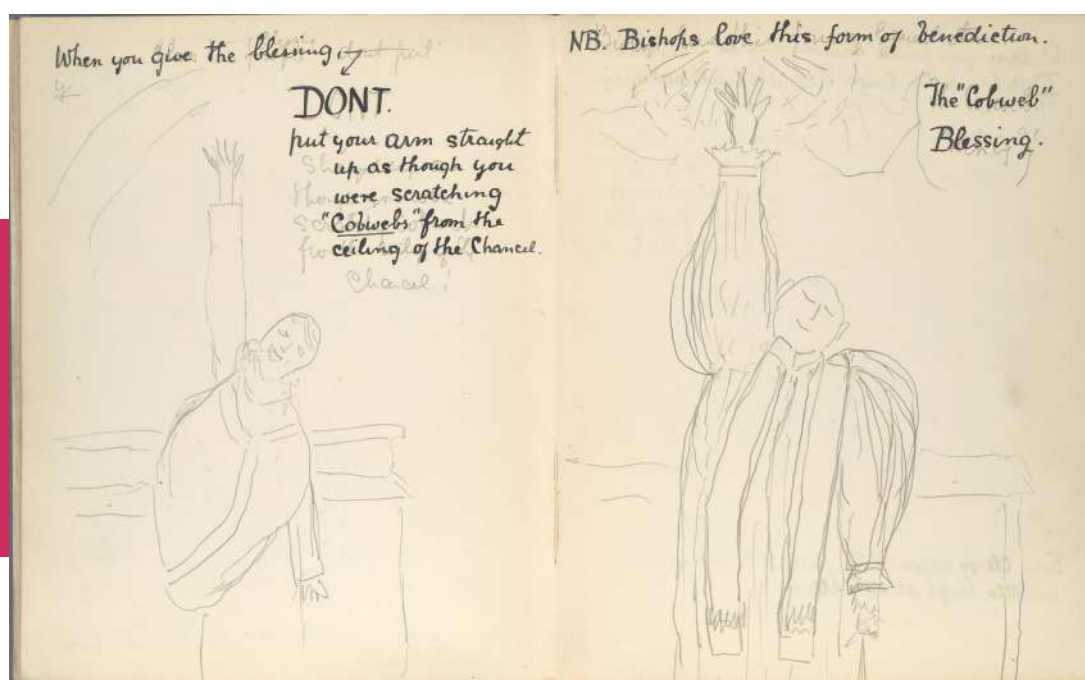 When you give the blessing
DONT.
put your arm straught
up as though you
were scratching
"Cobwebs" from the
ceiling of the Chancel.
Chancel!
NB. Bishops love this form of benediction.
The "Cobweb"
Blessing.